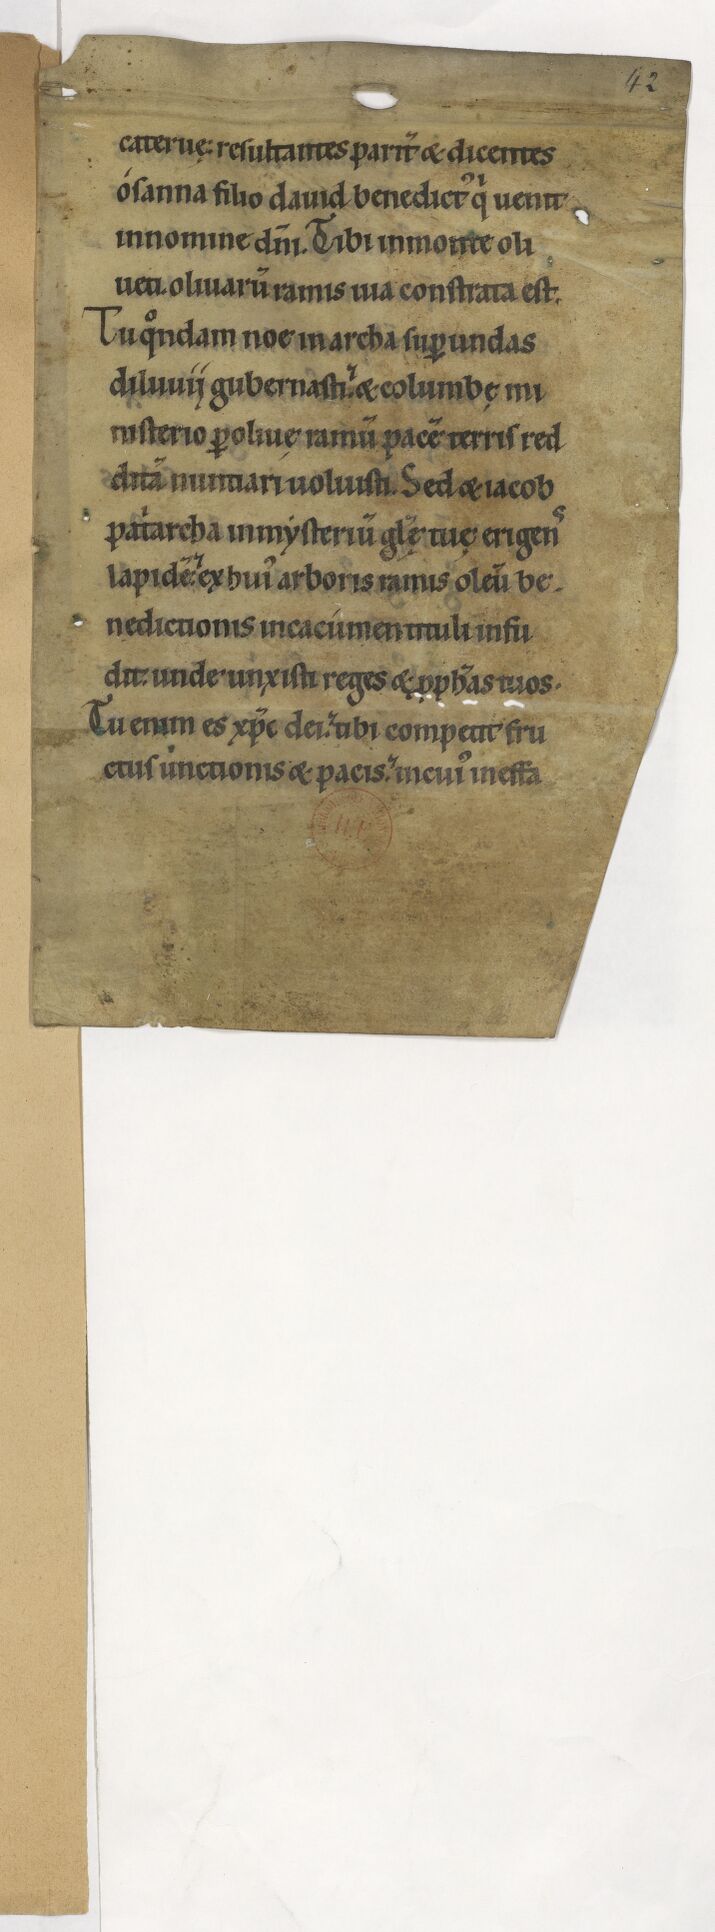 42
cateruę: resultantes parit̃ & dicentes
osanna filio dauid benedict᾽ qͥ uenit
innomine dñi. Tibi inmonte oli
ueti oliuarũ ramis uia constrata est.
Tu qͦndam noe in archa suꝑ undas
diluuij gubernasti: & columbę mi
nisterio ꝑ oliuę ramũ pacẽ terris red
ditã nuntiari uoluisti. Sed & iacob
patͥarcha inmysteriũ glę̃ tuę erigens
lapidẽ: ex hui᾽ arboris ramis oleũ be
nedictionis incacumen tituli infu
dit: unde unxisti reges & ꝓph̃as tuos.
Tu enim es xp̃c dei: tibi competit fru
ctus unctionis & pacis: incui᾽ ineffa